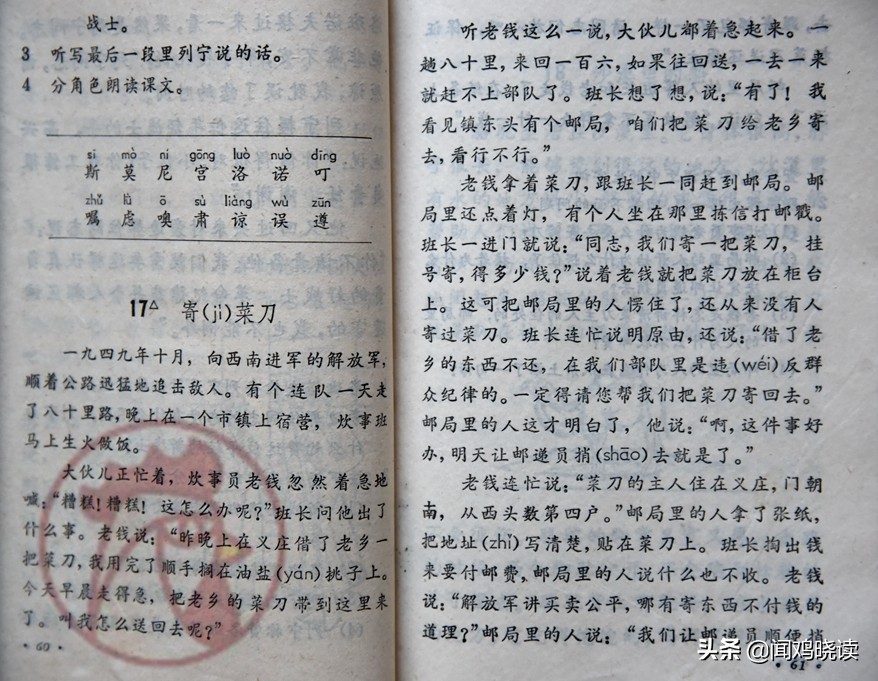 战士。
3 听写最后一段里列宁说的话。
4 分角色朗读课文。
sī mò ní gōng luò nuò dīng
斯 莫 尼 宫 洛 诺 叮
zhǔ lǜ ō sù liàng wù zūn
嘱 虑 噢 肃 谅 误 遵
17△ 寄(jì)菜刀
一九四九年十月，向西南进军的解放军，
顺着公路迅猛地追击敌人。有个连队一天走
了八十里路，晚上在一个市镇上宿营，炊事班
马上生火做饭。
大伙儿正忙着，炊事员老钱忽然着急地
喊：“糟糕！糟糕！这怎么办呢？”班长问他出了
什么事。老钱说：“昨晚上在义庄借了老乡一
把菜刀，我用完了顺手搁在油盐(yán)挑子上。
今天早晨走得急，把老乡的菜刀带到这里来
了。叫我怎么送回去呢？”
·60·
听老钱这么一说，大伙儿都着急起来。一
趟八十里，来回一百六，如果往回送，一去一来
就赶不上部队了。班长想了想，说：“有了！我
看见镇东头有个邮局，咱们把菜刀给老乡寄
去，看行不行。”
老钱拿着菜刀，跟班长一同赶到邮局。邮
局里还点着灯，有个人坐在那里拣信打邮戳。
班长一进门就说：“同志，我们寄一把菜刀，挂
号寄，得多少钱？”说着老钱就把菜刀放在柜台
上。这可把邮局里的人愣住了，还从来没有人
寄过菜刀。班长连忙说明原由，还说：“借了老
乡的东西不还，在我们部队里是违(wéi)反群
众纪律的。一定得请您帮我们把菜刀寄回去。”
邮局里的人这才明白了，他说：“啊，这件事好
办，明天让邮递员捎(shāo)去就是了。”
老钱连忙说：“菜刀的主人住在义庄，门朝
南，从西头数第四户。”邮局里的人拿了张纸，
把地址(zhǐ)写清楚，贴在菜刀上。班长掏出钱
来要付邮费，邮局里的人说什么也不收。老钱
说：“解放军讲买卖公平，哪有寄东西不付钱的
道理？”邮局里的人说：“我们让邮递员顺便捎
·61·
头条 @闻鸡晓读